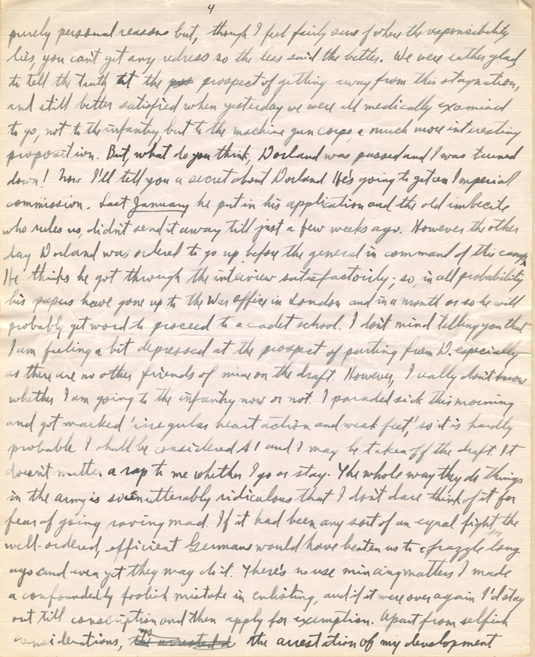 4
purely personal reasons but, though I feel fairly sure of where the responsibility
lies, you can't get any redress so the less said the better. We were rather glad
to tell the truth at the prospect of getting away from this stagnation,
and still better satisfied when yesterday we were all medically examined
to go, not to the infantry but to the machine gun corps, a much more interesting
proposition. But, what do you think, Dorland was passed and I was turned
down! Now I'll tell you a secret about Dorland. He's going to get an Imperial
commission. Last January he put in his application and the old imbecile
who rules us, didn't send it away till just a few weeks ago. However the other
day Dorland was ordered to go up before the general in command of this camp.
He thinks he got through the interview satisfactorily; so, in all probability
his papers have gone up to the War office in London and in a month or so he will
probably get word to proceed to a cadet school. I don't mind telling you that
I am feeling a bit depressed at the prospect of parting from D. especially
as there are no other friends of mine on the draft. However, I really don't know
whether I am going to the infantry now or not. I paraded sick this morning
and got marked 'irregular heart action and weak feet,' so it is hardly
probable I shall be considered A1 and I may be taken off the draft. It
doesn't matter a rap to me whether I go or stay. The whole way they do things
in the army is so unutterably ridiculous that I don't dare think of it for
fear of going raving mad. If it had been any sort of an equal fight the
well-ordered, efficient Germans would have beaten us to a frazzle long
ago and even yet they may do it. There's no use mincing matters I made
a confoundedly foolish mistake in enlisting, and if it were over again I'd stay
out till conscription and then apply for exemption. Apart from selfish
considerations, the arrestation of my development